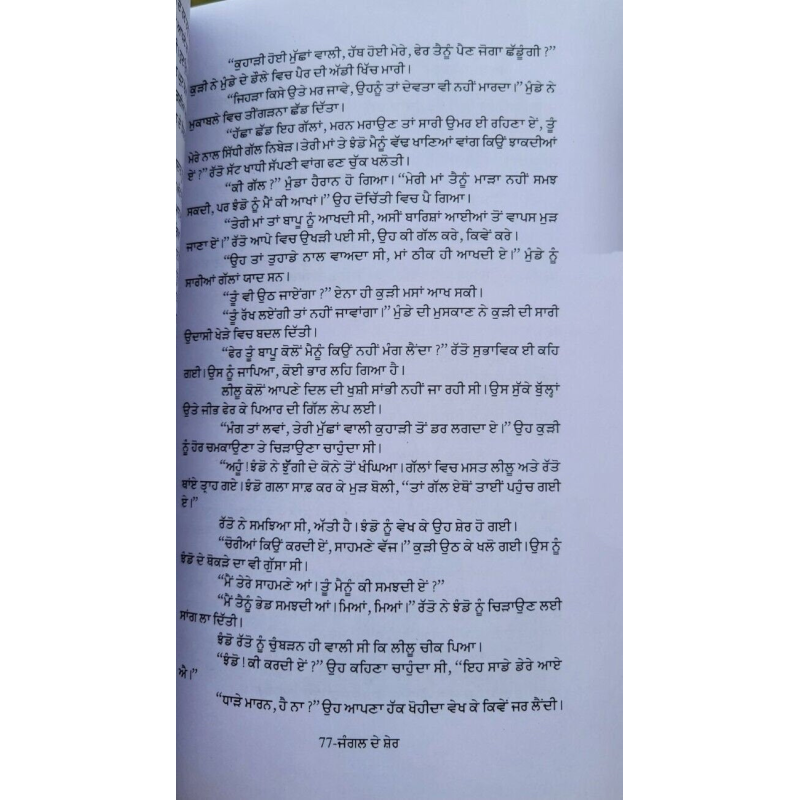 “ਕੁਹਾੜੀ ਹੋਈ ਮੁੱਛਾਂ ਵਾਲੀ, ਹੱਥ ਹੋਈ ਮੇਰੇ, ਫੇਰ ਤੈਨੂੰ ਪੈਣ ਜੋਗਾ ਛੱਡੂੰਗੀ ?”
ਕੁੜੀ ਨੇ ਮੁੰਡੇ ਦੇ ਡੌਲੇ ਵਿਚ ਪੈਰ ਦੀ ਅੱਡੀ ਖਿੱਚ ਮਾਰੀ।
“ਜਿਹੜਾ ਕਿਸੇ ਉਤੇ ਮਰ ਜਾਵੇ, ਉਹਨੂੰ ਤਾਂ ਦੇਵਤਾ ਵੀ ਨਹੀਂ ਮਾਰਦਾ।” ਮੁੰਡੇ ਨੇ
ਮੁਕਾਬਲੇ ਵਿਚ ਤੀਂਗੜਨਾ ਛੱਡ ਦਿੱਤਾ।
“ਹੱਛਾ ਛੱਡ ਇਹ ਗੱਲਾਂ, ਮਰਨ ਮਰਾਉਣ ਤਾਂ ਸਾਰੀ ਉਮਰ ਈ ਰਹਿਣਾ ਏਂ, ਤੂੰ
ਮੇਰੇ ਨਾਲ ਸਿੱਧੀ ਗੱਲ ਨਿਬੇੜ। ਤੇਰੀ ਮਾਂ ਤੇ ਝੰਡੋ ਮੈਨੂੰ ਵੱਢ ਖਾਣਿਆਂ ਵਾਂਗ ਕਿਉਂ ਝਾਕਦੀਆਂ
ਏਂ ?” ਰੱਤੋ ਸੱਟ ਖਾਧੀ ਸੱਪਣੀ ਵਾਂਗ ਫਣ ਚੁੱਕ ਖਲੋਤੀ।
“ਕੀ ਗੱਲ ?” ਮੁੰਡਾ ਹੈਰਾਨ ਹੋ ਗਿਆ। “ਮੇਰੀ ਮਾਂ ਤੈਨੂੰ ਮਾੜਾ ਨਹੀਂ ਸਮਝ
ਸਕਦੀ, ਪਰ ਝੰਡੋ ਨੂੰ ਮੈਂ ਕੀ ਆਖਾਂ।” ਉਹ ਦੋਚਿੱਤੀ ਵਿਚ ਪੈ ਗਿਆ।
“ਤੇਰੀ ਮਾਂ ਤਾਂ ਬਾਪੂ ਨੂੰ ਆਖਦੀ ਸੀ, ਅਸੀਂ ਬਾਰਿਸ਼ਾਂ ਆਈਆਂ ਤੋਂ ਵਾਪਸ ਮੁੜ
ਜਾਣਾ ਏਂ।” ਰੱਤੋ ਆਪੇ ਵਿਚ ਉਖੜੀ ਪਈ ਸੀ, ਉਹ ਕੀ ਗੱਲ ਕਰੇ, ਕਿਵੇਂ ਕਰੇ।
“ਉਹ ਤਾਂ ਤੁਹਾਡੇ ਨਾਲ ਵਾਅਦਾ ਸੀ, ਮਾਂ ਠੀਕ ਹੀ ਆਖਦੀ ਏ।” ਮੁੰਡੇ ਨੂੰ
ਸਾਰੀਆਂ ਗੱਲਾਂ ਯਾਦ ਸਨ।
“ਤੂੰ ਵੀ ਉਠ ਜਾਏਂਗਾ ?” ਏਨਾ ਹੀ ਕੁੜੀ ਮਸਾਂ ਆਖ ਸਕੀ।
“ਤੂੰ ਰੱਖ ਲਏਂਗੀ ਤਾਂ ਨਹੀਂ ਜਾਵਾਂਗਾ।” ਮੁੰਡੇ ਦੀ ਮੁਸਕਾਣ ਨੇ ਕੁੜੀ ਦੀ ਸਾਰੀ
ਉਦਾਸੀ ਖੇੜੇ ਵਿਚ ਬਦਲ ਦਿੱਤੀ।
“ਫੇਰ ਤੂੰ ਬਾਪੂ ਕੋਲੋਂ ਮੈਨੂੰ ਕਿਉਂ ਨਹੀਂ ਮੰਗ ਲੈਂਦਾ ?” ਰੱਤੋ ਸੁਭਾਵਿਕ ਈ ਕਹਿ
ਗਈ। ਉਸ ਨੂੰ ਜਾਪਿਆ, ਕੋਈ ਭਾਰ ਲਹਿ ਗਿਆ ਹੈ।
ਲੀਲੂ ਕੋਲੋਂ ਆਪਣੇ ਦਿਲ ਦੀ ਖੁਸ਼ੀ ਸਾਂਭੀ ਨਹੀਂ ਜਾ ਰਹੀ ਸੀ। ਉਸ ਸੁੱਕੇ ਬੁੱਲ੍ਹਾਂ
ਉਤੇ ਜੀਭ ਫੇਰ ਕੇ ਪਿਆਰ ਦੀ ਗਿੱਲ ਲੇਪ ਲਈ।
“ਮੰਗ ਤਾਂ ਲਵਾਂ, ਤੇਰੀ ਮੁੱਛਾਂ ਵਾਲੀ ਕੁਹਾੜੀ ਤੋਂ ਡਰ ਲਗਦਾ ਏ।” ਉਹ ਕੁੜੀ
ਨੂੰ ਹੋਰ ਚਮਕਾਉਣਾ ਤੇ ਚਿੜਾਉਣਾ ਚਾਹੁੰਦਾ ਸੀ।
“ਅਹੂੰ ! ਝੰਡੋ ਨੇ ਝੁੱਗੀ ਦੇ ਕੋਨੇ ਤੋਂ ਖੰਘਿਆ। ਗੱਲਾਂ ਵਿਚ ਮਸਤ ਲੀਲੂ ਅਤੇ ਰੱਤੋ
ਥਾਂਏ ਤ੍ਰਾਹ ਗਏ। ਝੰਡੋ ਗਲਾ ਸਾਫ਼ ਕਰ ਕੇ ਮੁੜ ਬੋਲੀ, “ਤਾਂ ਗੱਲ ਏਥੋਂ ਤਾਈਂ ਪਹੁੰਚ ਗਈ
ਏ।”
ਰੱਤੋ ਨੇ ਸਮਝਿਆ ਸੀ, ਅੱਤੀ ਹੈ। ਝੰਡੋ ਨੂੰ ਵੇਖ ਕੇ ਉਹ ਸ਼ੇਰ ਹੋ ਗਈ।
“ਚੋਰੀਆਂ ਕਿਉਂ ਕਰਦੀ ਏਂ, ਸਾਹਮਣੇ ਵੱਜ।” ਕੁੜੀ ਉਠ ਕੇ ਖਲੋ ਗਈ। ਉਸ ਨੂੰ
ਝੰਡੋ ਦੇ ਥੋਕੜੇ ਦਾ ਵੀ ਗੁੱਸਾ ਸੀ।
“ਮੈਂ ਤੇਰੇ ਸਾਹਮਣੇ ਆਂ। ਤੂੰ ਮੈਨੂੰ ਕੀ ਸਮਝਦੀ ਏਂ ?”
“ਮੈਂ ਤੈਨੂੰ ਭੇਡ ਸਮਝਦੀ ਆਂ। ਮਿਆਂ, ਮਿਆਂ।” ਰੱਤੋ ਨੇ ਝੰਡੋ ਨੂੰ ਚਿੜਾਉਣ ਲਈ
ਸਾਂਗ ਲਾ ਦਿੱਤੀ।
ਝੰਡੋ ਰੱਤੋ ਨੂੰ ਚੁੰਬੜਨ ਹੀ ਵਾਲੀ ਸੀ ਕਿ ਲੀਲੂ ਚੀਕ ਪਿਆ।
“ਝੰਡੋ ! ਕੀ ਕਰਦੀ ਏਂ ?” ਉਹ ਕਹਿਣਾ ਚਾਹੁੰਦਾ ਸੀ, “ਇਹ ਸਾਡੇ ਡੇਰੇ ਆਏ
ਐ।”
“ਧਾੜੇ ਮਾਰਨ, ਹੈ ਨਾ ?” ਉਹ ਆਪਣਾ ਹੱਕ ਖੋਹੀਦਾ ਵੇਖ ਕੇ ਕਿਵੇਂ ਜਰ ਲੈਂਦੀ।
77-ਜੰਗਲ ਦੇ ਸ਼ੇਰ